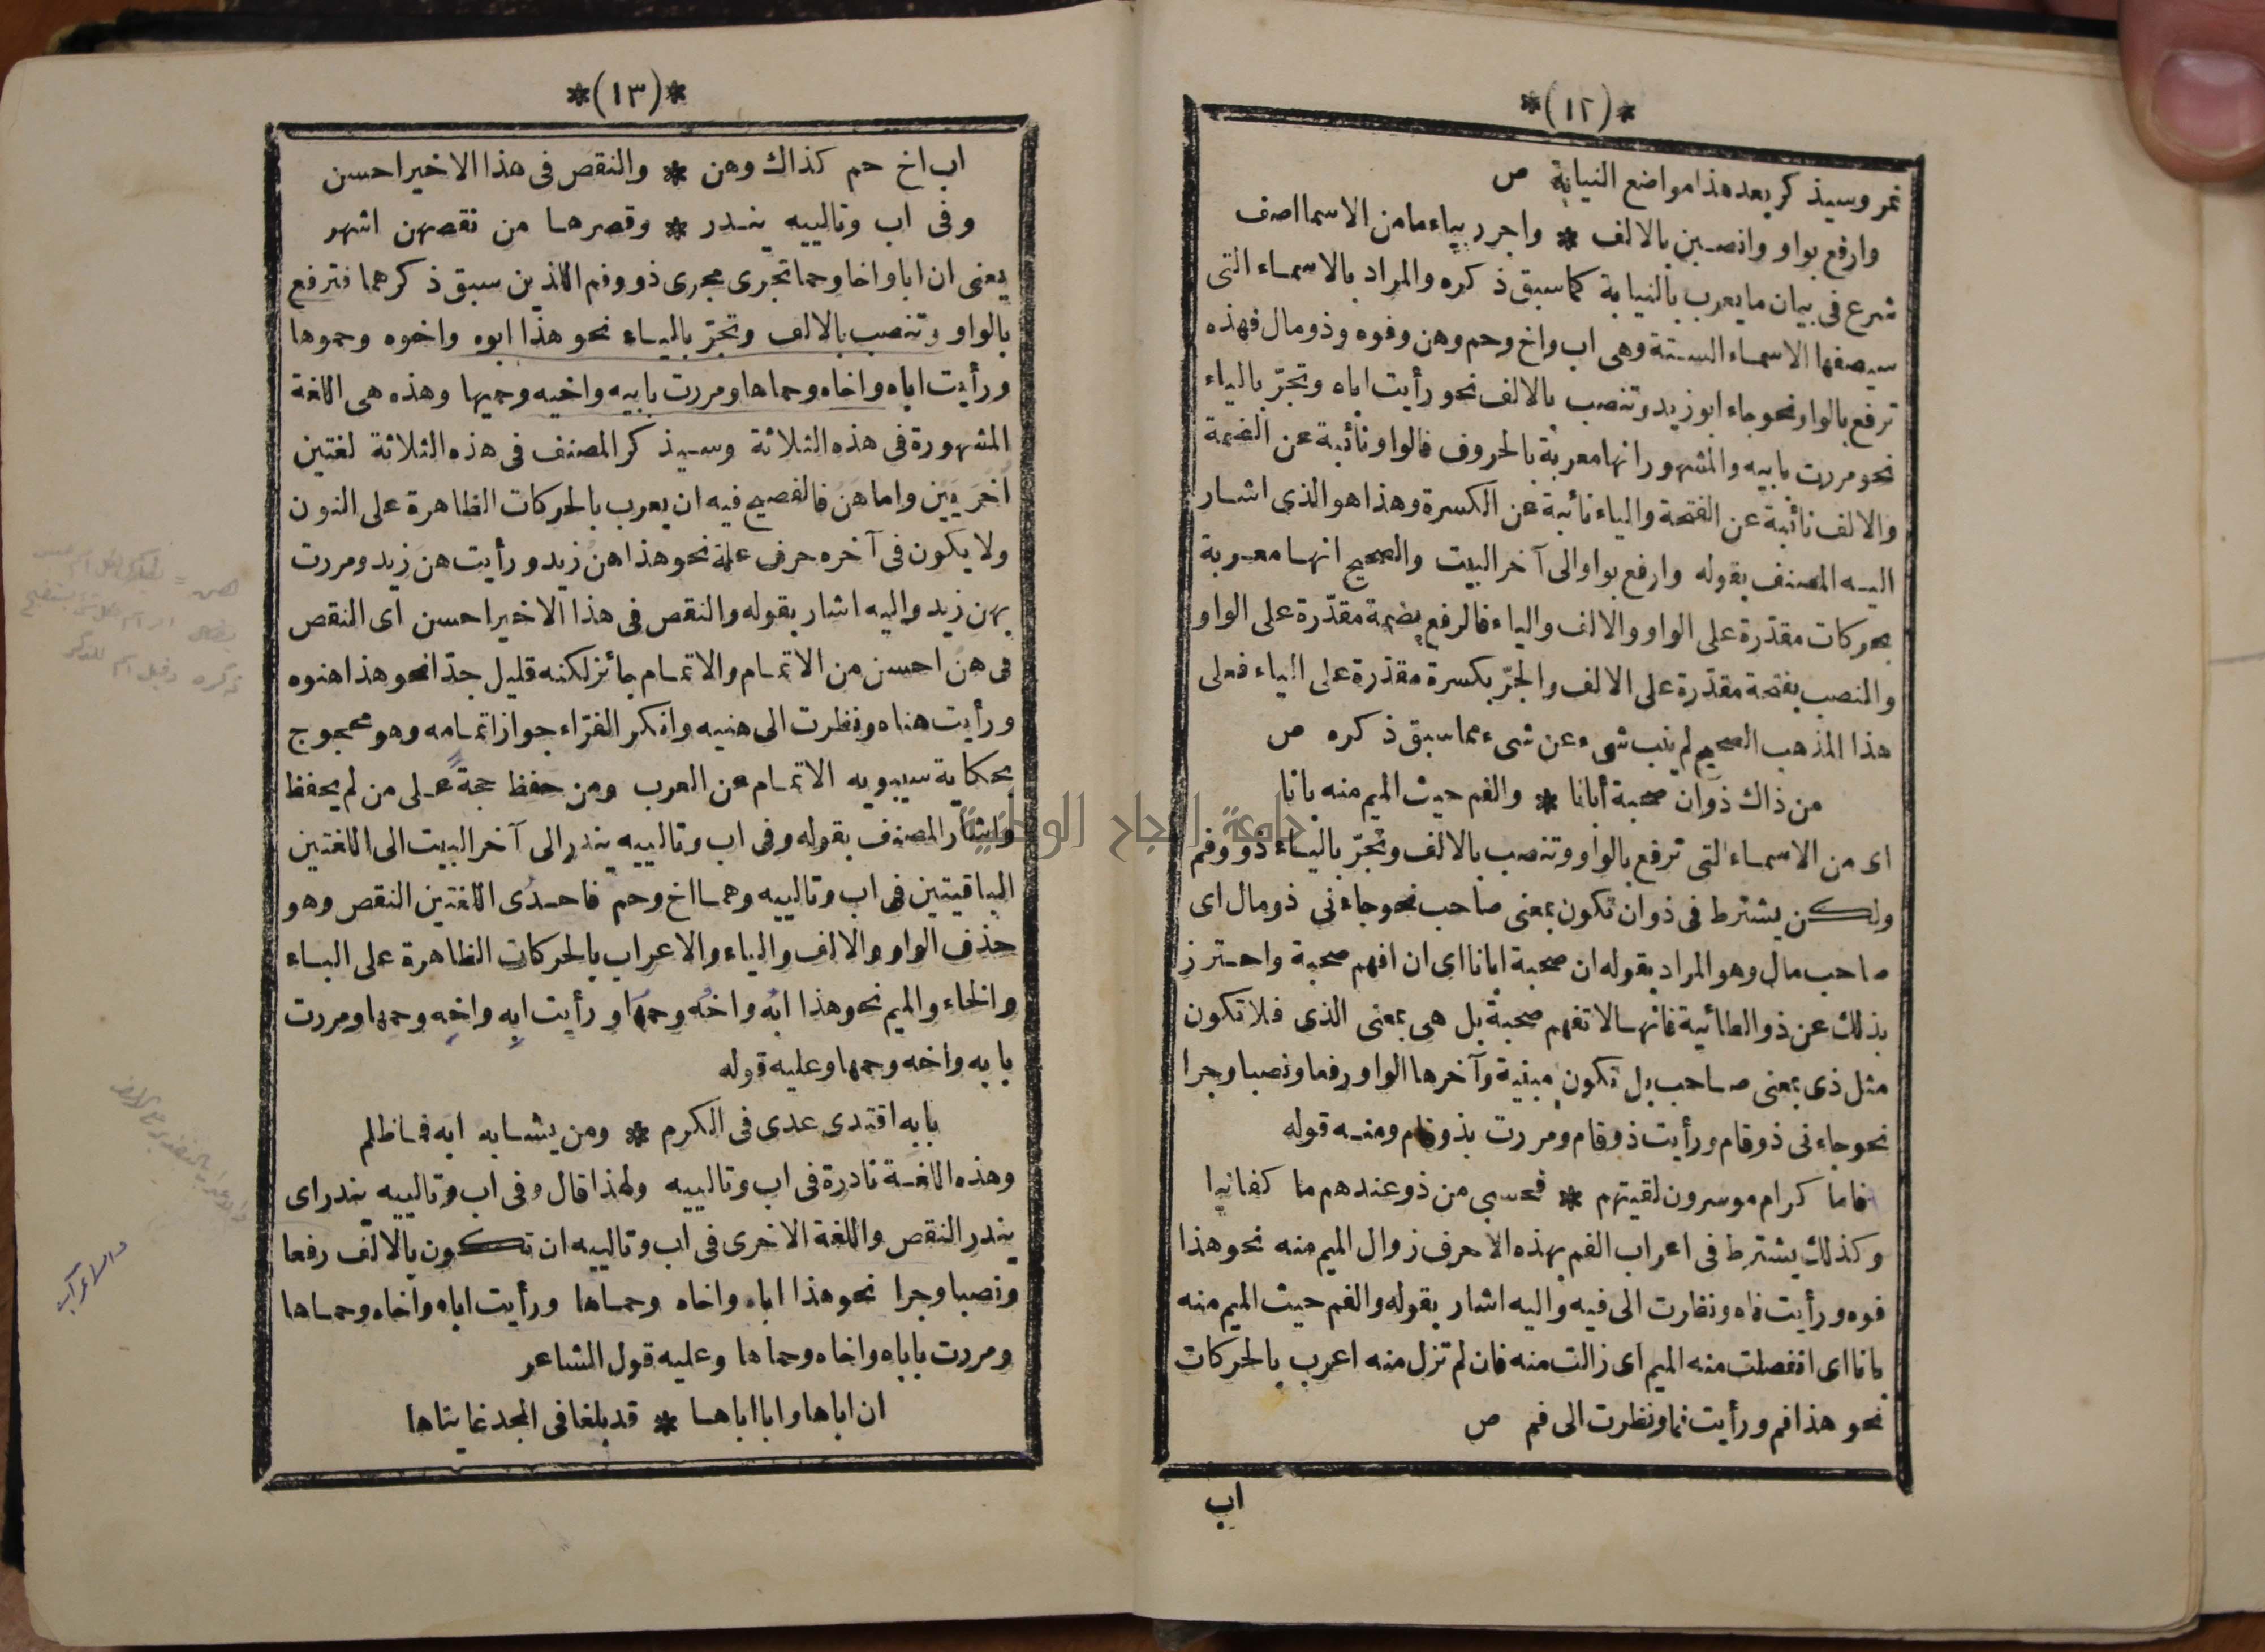 *(١٢)*
نمر وسيذكر بعد هذا مواضع النيابة ص
وارفع بواو وانصبن بالالف * واجرر بياء ما من الاسما اصف
شرع فى بيان ما يعرب بالنيابة كما سبق ذكره والمراد بالاسماء التى
سيصفها الاسماء الستة وهى اب واخ وحم وهن وفوه وذو مال فهذه
ترفع بالواو نحو جاء ابو زيد وتنصب بالالف نحو رأيت اباه وتجرّ بالياء
نحو مررت بابيه والمشهور انها معربة بالحروف فالواو نائبة عن الضمة
والالف نائبة عن الفتحة والياء نائبة عن الكسرة وهذا هو الذى اشار
اليه المصنف بقوله وارفع بواو الى آخر البيت والصحيح انها معربة
بحركات مقدّرة على الواو والالف والياء فالرفع بضمة مقدّرة على الواو
والنصب بفتحة مقدّرة على الالف والجرّ بكسرة مقدّرة على الياء فعلى
هذا المذهب الصحيح لم ينب شىء عن شىء مما سبق ذكره ص
من ذاك ذو ان صحبة أبانا * والفم حيث الميم منه بانا
اى من الاسماء التى ترفع بالواو وتنصب بالالف وتجرّ بالياء ذو وفم
ولكن يشترط فى ذو ان تكون بمعنى صاحب نحو جاءنى ذو مال اى
صاحب مال وهو المراد بقوله ان صحبة ابانا اى ان افهم صحبة واحترز
بذلك عن ذو الطائية فانها لا تفهم صحبة بل هى بمعنى الذى فلا تكون
مثل ذى بمعنى صاحب بل تكون مبنية وآخرها الواو رفعا ونصبا وجرا
نحو جاءنى ذو قام ورأيت ذو قام ومررت بذو قام ومنه قوله
فاما كرام موسرون لقيتهم * فحسبى من ذو عندهم ما كفانيا
وكذلك يشترط فى اعراب الفم بهذه الاحرف زوال الميم منه نحو هذا
فوه ورأيت فاه ونظرت الى فيه واليه اشار بقوله والفم حيث الميم منه
بانا اى انفصلت منه الميم اى زالت منه فان لم تزل منه اعرب بالحركات
نحو هذا فم ورأيت فما ونظرت الى فم ص
اب
*(١٣)*
اب اخ حم كذاك وهن * والنقص فى هذا الاخير احسن
وفى اب وتالييه يندر * وقصرها من نقصهن اشهر
يعنى ان ابا واخا وحما تجرى مجرى ذو وفم اللذين سبق ذكرهما فترفع
بالواو وتنصب بالالف وتجرّ بالياء نحو هذا ابوه واخوه وحموها
ورأيت اباه واخاه وحماها ومررت بابيه واخيه وحميها وهذه هى اللغة
المشهورة فى هذه الثلاثة وسيذكر المصنف فى هذه الثلاثة لغتين
أخريين واما هن فالفصيح فيه ان يعرب بالحركات الظاهرة على النون
ولا يكون فى آخره حرف علة نحو هذا هن زيد ورأيت هن زيد ومررت
بهن زيد واليه اشار بقوله والنقص فى هذا الاخير احسن اى النقص
فى هن احسن من الاتمام والاتمام جائز لكنه قليل جدّا نحو هذا هنوه
ورأيت هناه ونظرت الى هنيه وانكر الفرّاء جواز اتمامه وهو محجوج
بحكاية سيبويه الاتمام عن العرب ومن حفظ حجة على من لم يحفظ
واشار المصنف بقوله وفى اب وتالييه يندر الى آخر البيت الى اللغتين
الباقيتين فى اب وتالييه وهما اخ وحم فاحدى اللغتين النقص وهو
حذف الواو والالف والياء والاعراب بالحركات الظاهرة على الباء
والخاء والميم نحو هذا ابه واخه وحمها ورأيت ابه واخه وحمها ومررت
بابه واخه وحمها وعليه قوله
بابه اقتدى عدى فى الكرم * ومن يشابه ابه فما ظلم
وهذه اللغة نادرة فى اب وتالييه ولهذا قال وفى اب وتالييه يندر اى
يندر النقص واللغة الاخرى فى اب وتالييه ان تكون بالالف رفعا
ونصبا وجرا نحو هذا اباه واخاه وحماها ورأيت اباه واخاه وحماها
ومررت باباه واخاه وحماها وعليه قول الشاعر
ان اباها وابا اباها * قد بلغا فى المجد غايتاها
جامعة النجاح الوطنية